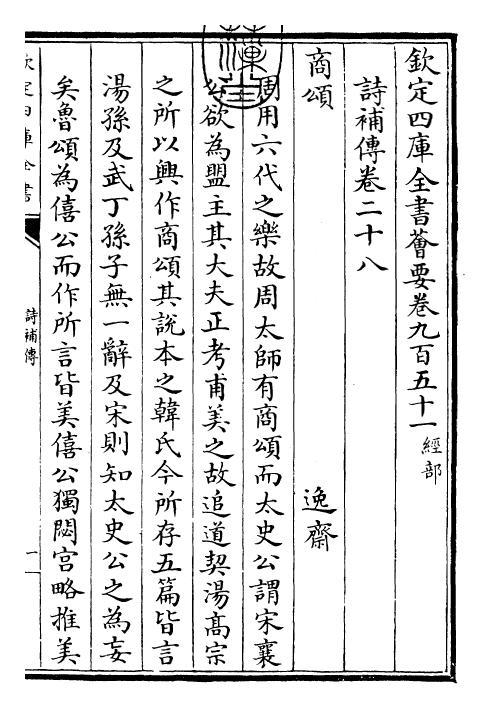 欽定四庫全書薈要卷九百五十一 經部
詩補傳卷二十八
逸齋
商頌
周用六代之樂故周太師有商頌而太史公謂宋襄
公欲為盟主其大夫正考甫美之故追道契湯髙宗
之所以興作商頌其說本之韓氏今所存五篇皆言
湯孫及武丁孫子無一辭及宋則知太史公之為妄
矣魯頌為僖公而作所言皆美僖公獨閟宫略推美
欽定四庫全書
詩補傳
一